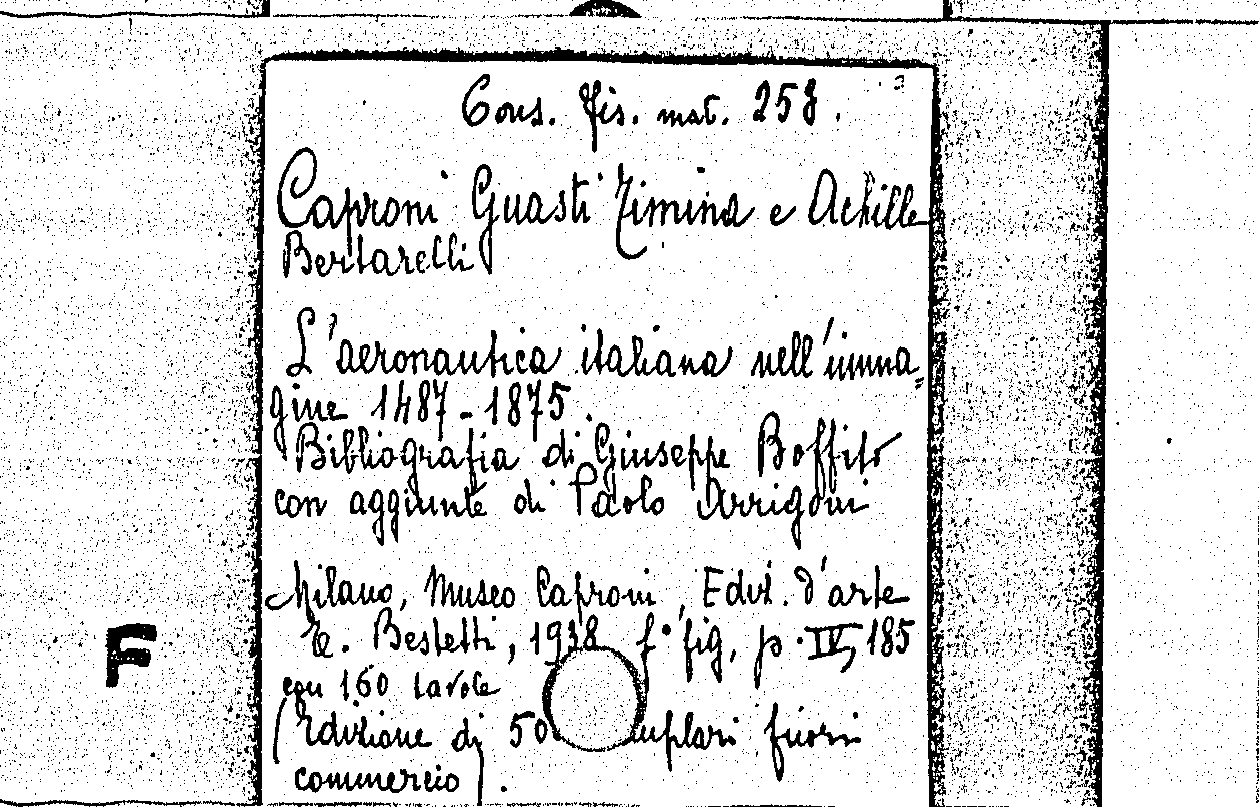 3
Cons. fis. mat. 253.
Caproni Guasti Timina e Achille
Bertarelli
L'aeronautica italiana nell'imma=
gine 1487-1875.
Bibliografia di Giuseppe Boffito
con aggiunte di Paolo Arrigoni
Milano, Museo Caproni, Ediz. d'arte
E. Bestetti, 1938 f° fig, p. IV, 185
con 160 tavole
(Edizione di fuori
commercio).
F